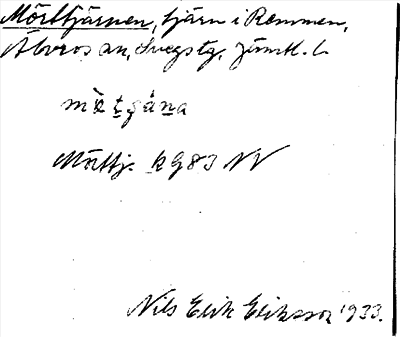 Mörttjärnen, tjärn i Remmen,
Älvros sn, Svegs tg, Jämtl. l.
Mörttj. k 983 NV
Nils Erik Eriksson 1933.